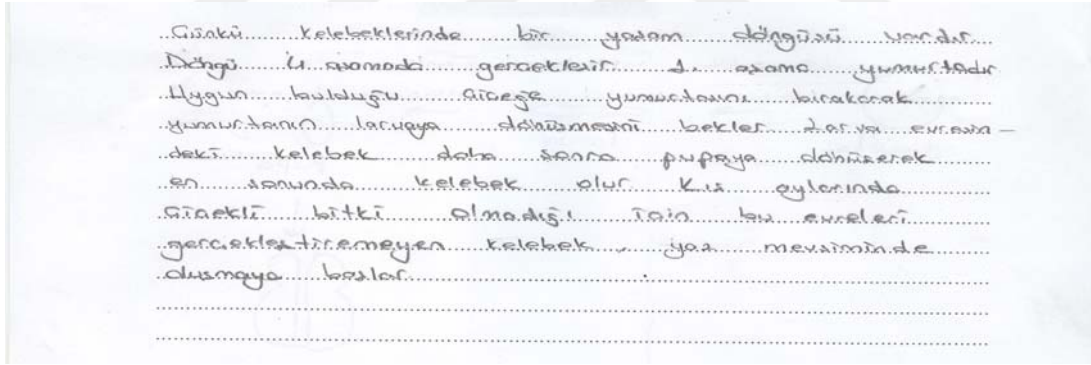 Çünkü kelebeklerinde bir yaşam döngüsü vardır.
Döngü 4 aşamada gerçekleşir. 1. aşama yumurtadır
Uygun bulduğu çiçeğe yumurtasını bırakarak
yumurtanın larvaya dönüşmesini bekler. Larva evresin-
deki kelebek daha sonra pupaya dönüşerek
en sonunda kelebek olur. Kış aylarında
çiçekli bitki olmadığı için bu evreleri
gerçekleştiremeyen kelebek, yaz mevsiminde
oluşmaya başlar.